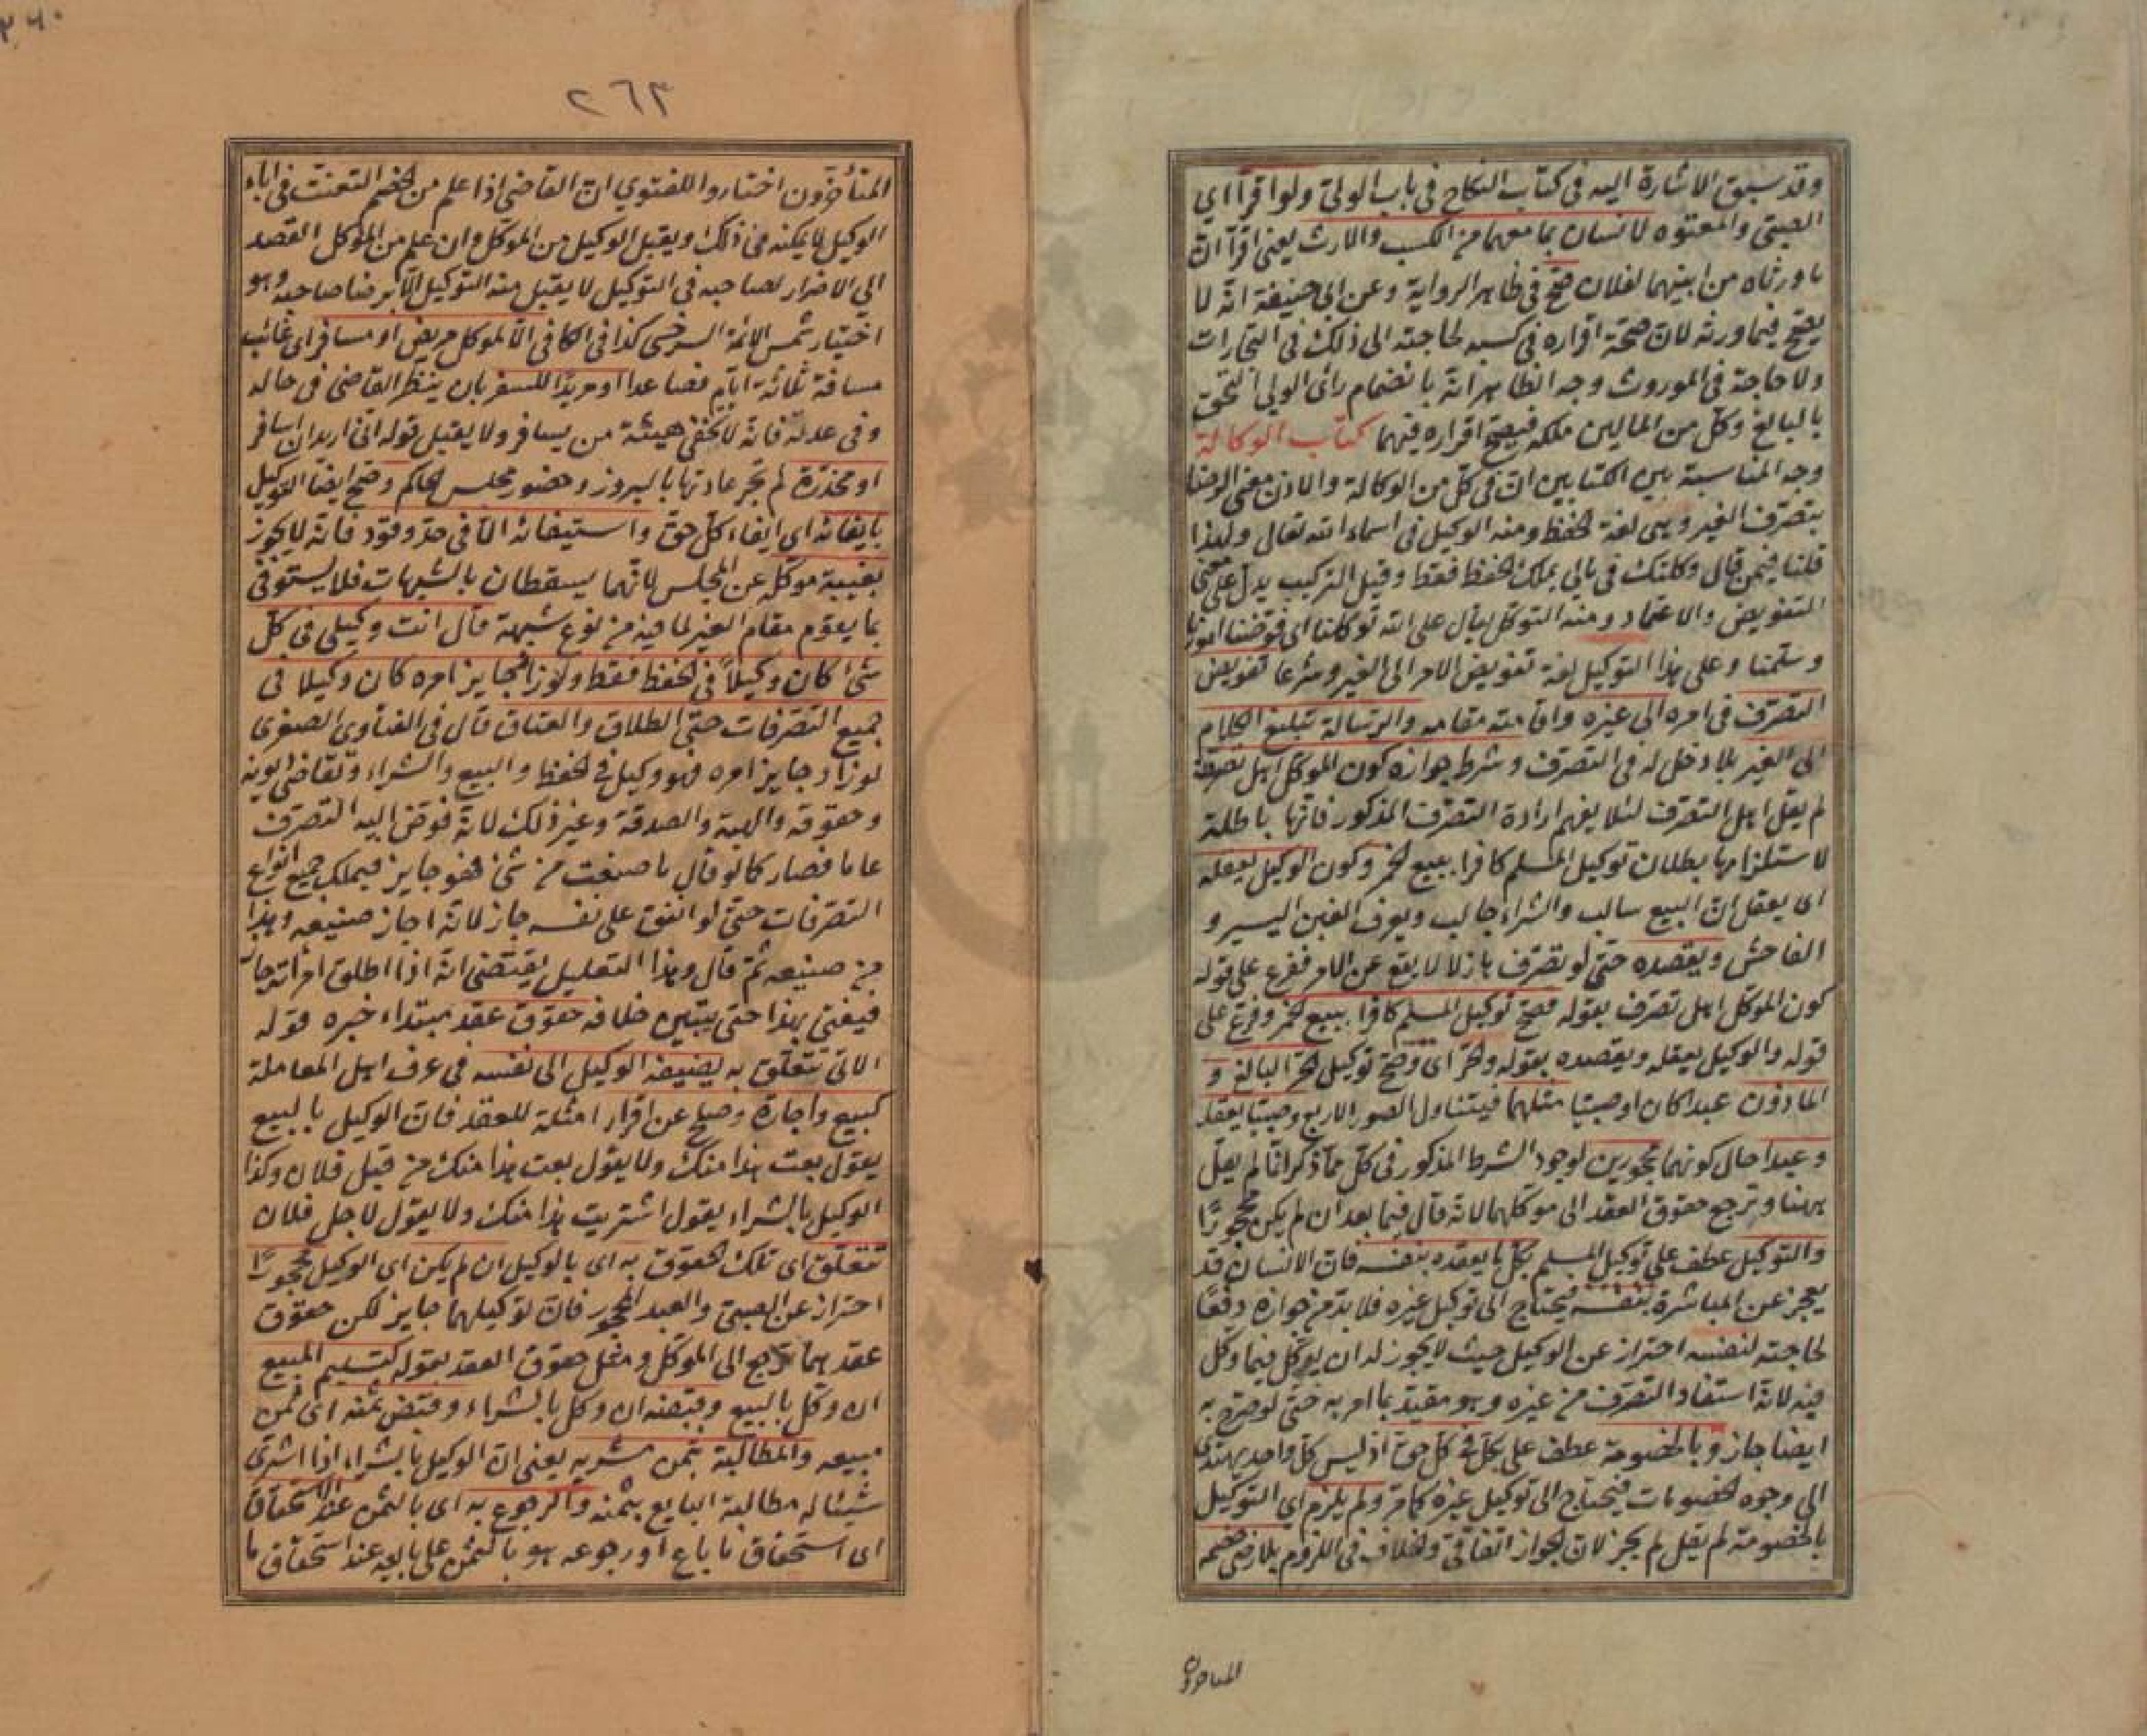 وقد سبق الاشارة اليه فى كتاب النكاح فى باب الولى ولو اقرا اى
الصبى والمعتوه لانسان بما معهما من الكسب والارث يعنى اقرا ان
ما ورثاه من ابيهما لفلان صح فى ظاهر الرواية وعن ابى حنيفة انه لا
يصح فيما ورثه لان صحة اقراره فى كسبه لحاجته الى ذلك فى التجارات
ولا حاجة فى الموروث وجه الظاهر انه بانضمام راى الولى التحق
بالبالغ وكل من المالين ملكه فيصح اقراره فيهما كتاب الوكالة
وجه المناسبة بين الكتابين ان فى كل من الوكالة والاذن معنى الرضا
بتصرف الغير وهى لغة الحفظ ومنه الوكيل فى اسماء الله تعالى ولهذا
قلنا فيمن قال وكلتك فى مالى يملك الحفظ فقط وقيل التركيب يدل على معنى
التفويض والاعتماد ومنه التوكل يقال على الله توكلنا اى فوضنا امورنا
وسلمنا وعلى هذا التوكيل لغة تفويض الامر الى الغير وشرعا تفويض
التصرف فى امره الى غيره واقامته مقامه والرسالة تبليغ الكلام
الى الغير بلا دخل له فى التصرف وشرط جوازه كون الموكل اهل تصرف
لم يقل اهل التصرف لئلا يفهم ارادة التصرف المذكور فانها باطلة
لاستلزامها بطلان توكيل المسلم كافرا ببيع الخمر وكون الوكيل يعقله
اى يعقل ان البيع سالب والشراء جالب ويعرف الغبن اليسير و
الفاحش ويقصده حتى لو تصرف هازلا لا يقع عن الامر ففرع على قوله
كون الموكل اهل تصرف بقوله فصح توكيل المسلم كافرا ببيع الخمر وفرع على
قوله والوكيل يعقله ويقصده بقوله والحر اى وصح توكيل الحر البالغ و
الماذون عبدا كان او صبيا مثلهما فيتناول الصور الاربع وصبيا يعقل
وعبدا حال كونهما محجورين لوجود الشرط المذكور فى كل مما ذكر انما لم يقل
ههنا وترجع حقوق العقد الى موكلهما لانه قال فيما بعد ان لم يكن محجورا
والتوكيل عطف على توكيل المسلم بكل ما يعقده بنفسه فان الانسان قد
يعجز عن المباشرة بنفسه فيحتاج الى توكيل غيره فلا بد من جوازه دفعا
لحاجته لنفسه احتراز عن الوكيل حيث لا يجوز له ان يوكل فيما وكل
فيه لانه استفاد التصرف من غيره وهو مقيد بما امر به حتى لو صرح به
ايضا جاز وبالخصومة عطف على بكل فى كل حق اذ ليس كل واحد يهتدى
الى وجوه الخصومات فيحتاج الى توكيل غيره كما مر ولم يلزم اى التوكيل
بالخصومة لم يقل لم يجز لان الجواز اتفاقى والخلاف فى اللزوم بلا رضى خصمه
المتاخرون
٢٦٣
المتأخرون اختاروا للفتوى ان القاضى اذا علم من الخصم التعنت فى اباء
الوكيل لا يمكنه من ذلك ويقبل الوكيل من الموكل وان علم من الموكل القصد
الى الاضرار لصاحبه فى التوكيل لا يقبل منه التوكيل الا برضا صاحبه وهو
اختيار شمس الائمة السرخسى كذا فى الكافى الا لموكل مريض او مسافر اى غائب
مسافة ثلثة ايام فصاعدا او مريدا للسفر بان ينظر القاضى فى حاله
وفى عدته فانه لا تخفى هيئة من يسافر ولا يقبل قوله انى اريد ان اسافر
او مخدرة لم تجر عادتها بالبروز وحضور مجلس الحاكم وصح ايضا التوكيل
بايفائه اى ايفاء كل حق واستيفائه الا فى حد وقود فانه لا يجوز
بغيبة موكله عن المجلس لانهما يسقطان بالشبهات فلا يستوفى
بما يقوم مقام الغير لما فيه من نوع شبهة قال انت وكيلى فى كل
شئ كان وكيلا فى الحفظ فقط ولو زاد جايز امره كان وكيلا فى
جميع التصرفات حتى الطلاق والعتاق قال فى الفتاوى الصغرى
لو زاد جايز امره فهو وكيل فى الحفظ والبيع والشراء وتقاضى ديونه
وحقوقه والهبة والصدقة وغير ذلك لانه فوض اليه التصرف
عاما فصار كما لو قال ما صنعت من شئ فهو جايز فيملك جميع انواع
التصرفات حتى لو انفق على نفسه جاز لانه اجاز صنيعه وهذا
من صنيعه ثم قال وهذا التعليل يقتضى انه اذا اطلق امرأته جاز
فيفتى بهذا حتى يتبين خلافه حقوق عقد مبتداء خبره قوله
الاتى تتعلق به يضيفه الوكيل الى نفسه فى عرف اهل المعاملة
كبيع واجارة وصلح عن اقرار امثلة للعقد فان الوكيل بالبيع
يقول بعت هذا منك ولا يقول بعت هذا منك من قبل فلان وكذا
الوكيل بالشراء يقول اشتريت هذا منك ولا يقول لاجل فلان
تتعلق اى تلك الحقوق به اى بالوكيل ان لم يكن اى الوكيل محجورا
احتراز عن الصبى والعبد المحجور فان توكيلهما جايز لكن حقوق
عقدهما ترجع الى الموكل ومثل حقوق العقد بقوله كتسليم المبيع
ان وكل بالبيع وقبضه ان وكل بالشراء وقبض ثمنه اى ثمن
مبيعه والمطالبة بثمن مشريه يعنى ان الوكيل بالشراء اذا اشترى
شيئا له مطالبة البايع بثمنه والرجوع به اى بالثمن عند الاستحقاق
اى استحقاق ما باع او رجوعه هو بالثمن على بايعه عند استحقاق ما